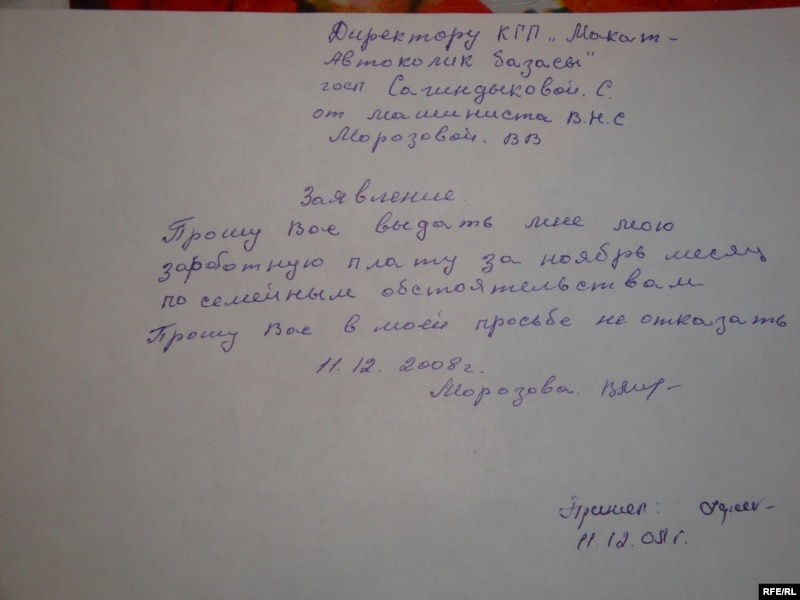 Директору КГП „Макат-
Автоколик базасы"
госп. Сагиндыковой. С.
от машиниста В.Н.С.
Морозовой. В В
Заявление.
Прошу Вас выдать мне мою
заработную плату за ноябрь месяц
по семейным обстоятельствам
Прошу Вас в моей просьбе не отказать
11. 12. 2008г.
Морозова.
Принял:
11.12.08г.
RFE/RL